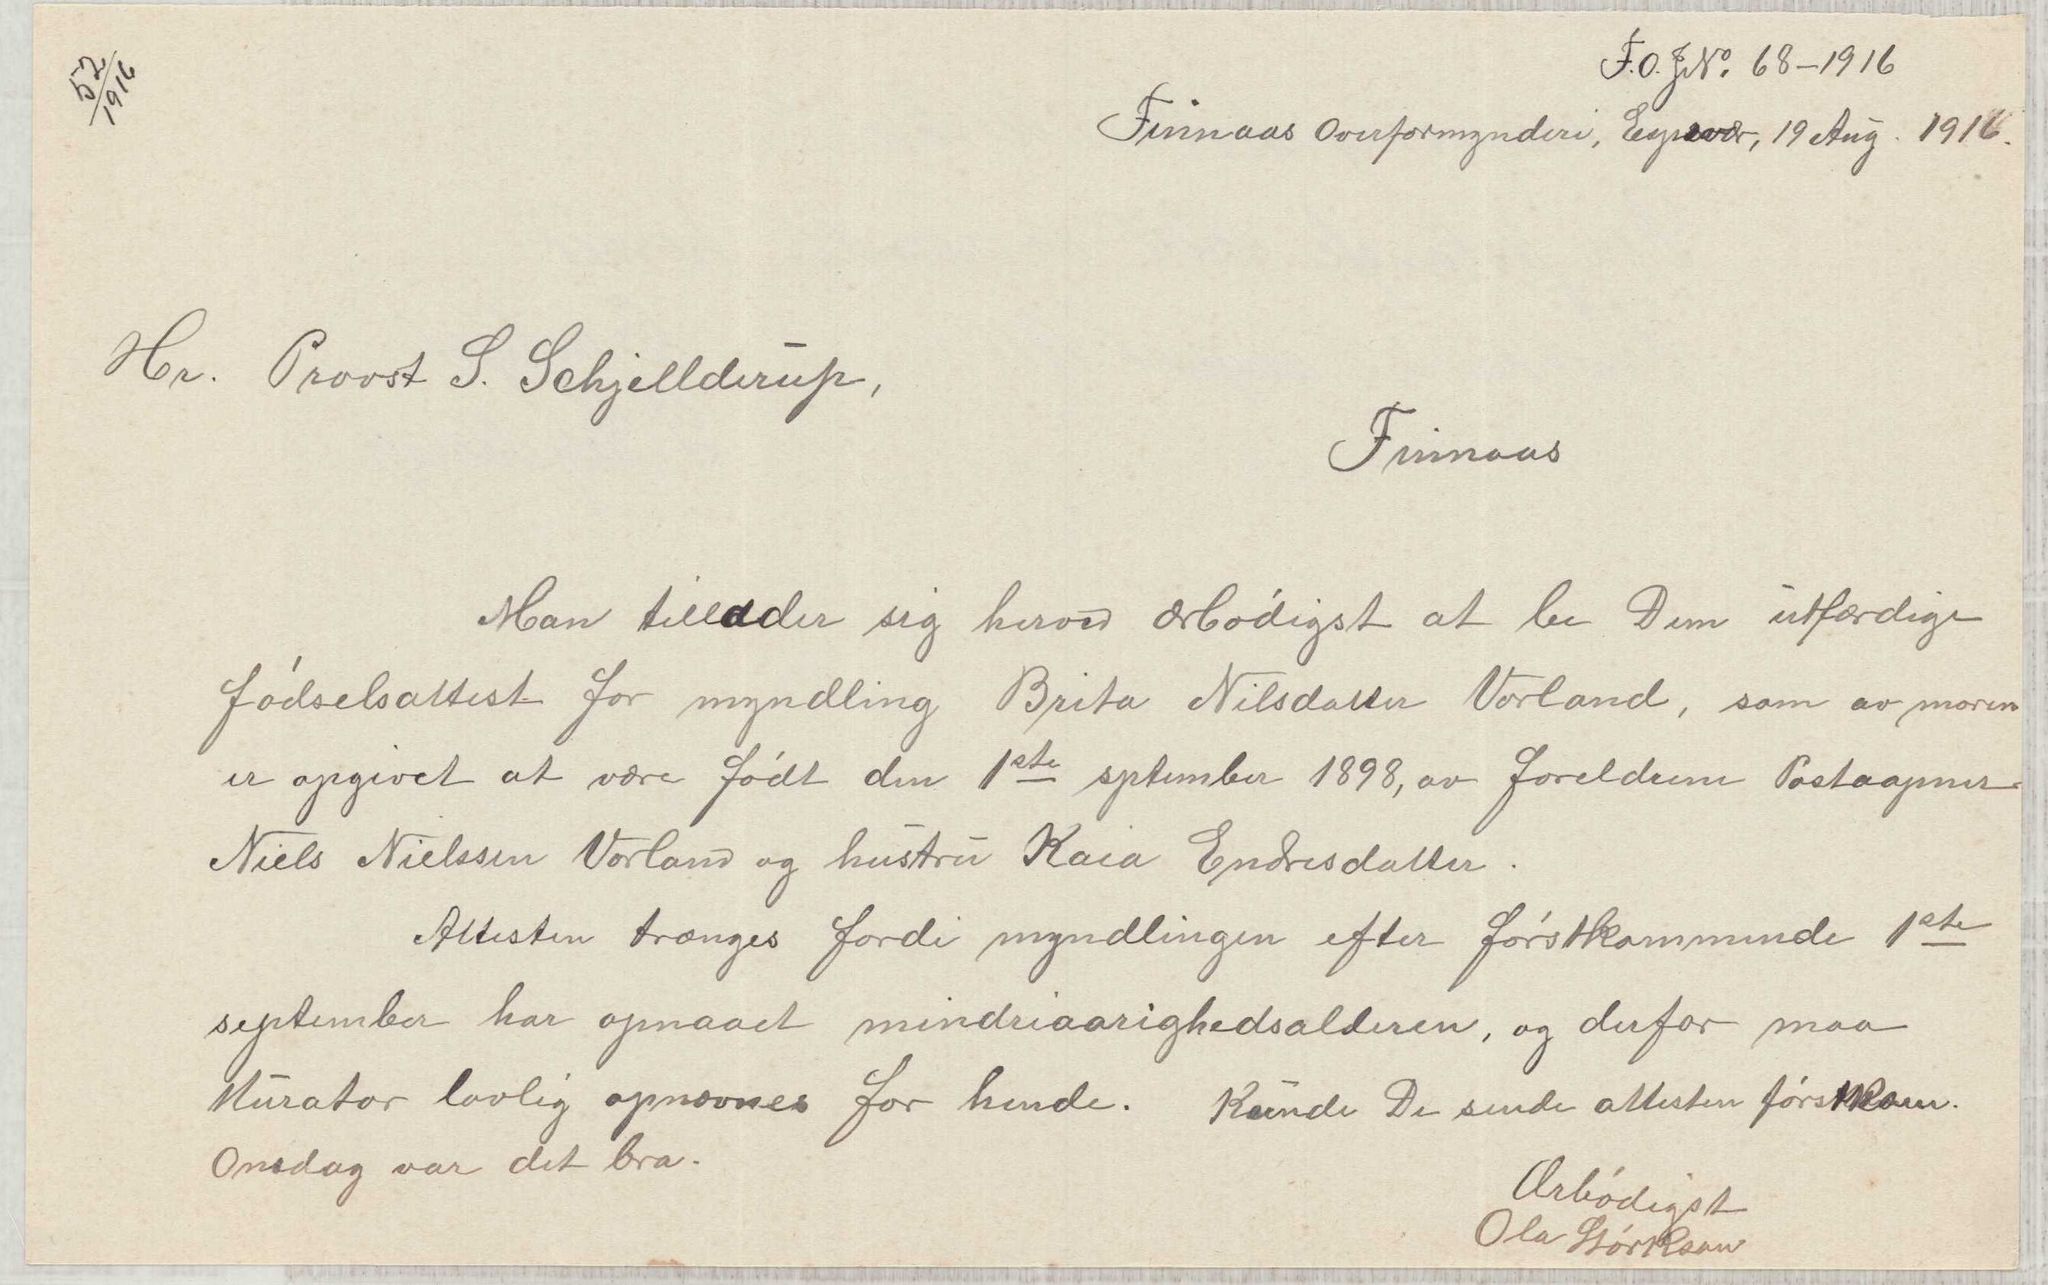 52/1916
F.O.J.No. 68-1916
Finnaas Overformynderi, Espevær, 19 Aug. 1916.
Hr. Provst S. Schjellderup,
Finnaas
Man tillader sig herved ærbödigst at be Dem utfærdige
födselsattest for myndling Brita Nilsdatter Vorland, som av moren
er opgivet at være födt den 1ste sptember 1898, av foreldrene Postaapner
Niels Nielssen Vorland og hustru Kaia Endresdatter.
Attesten trænges fordi myndlingen efter förstkommende 1ste
september har opnaaet mindreaarighedsalderen, og derfor maa
Kurator lovlig opnævnes for hende. Kunde De sende attesten förstkom.
Onsdag var det bra.
Ærbödigst
Ola Störkson